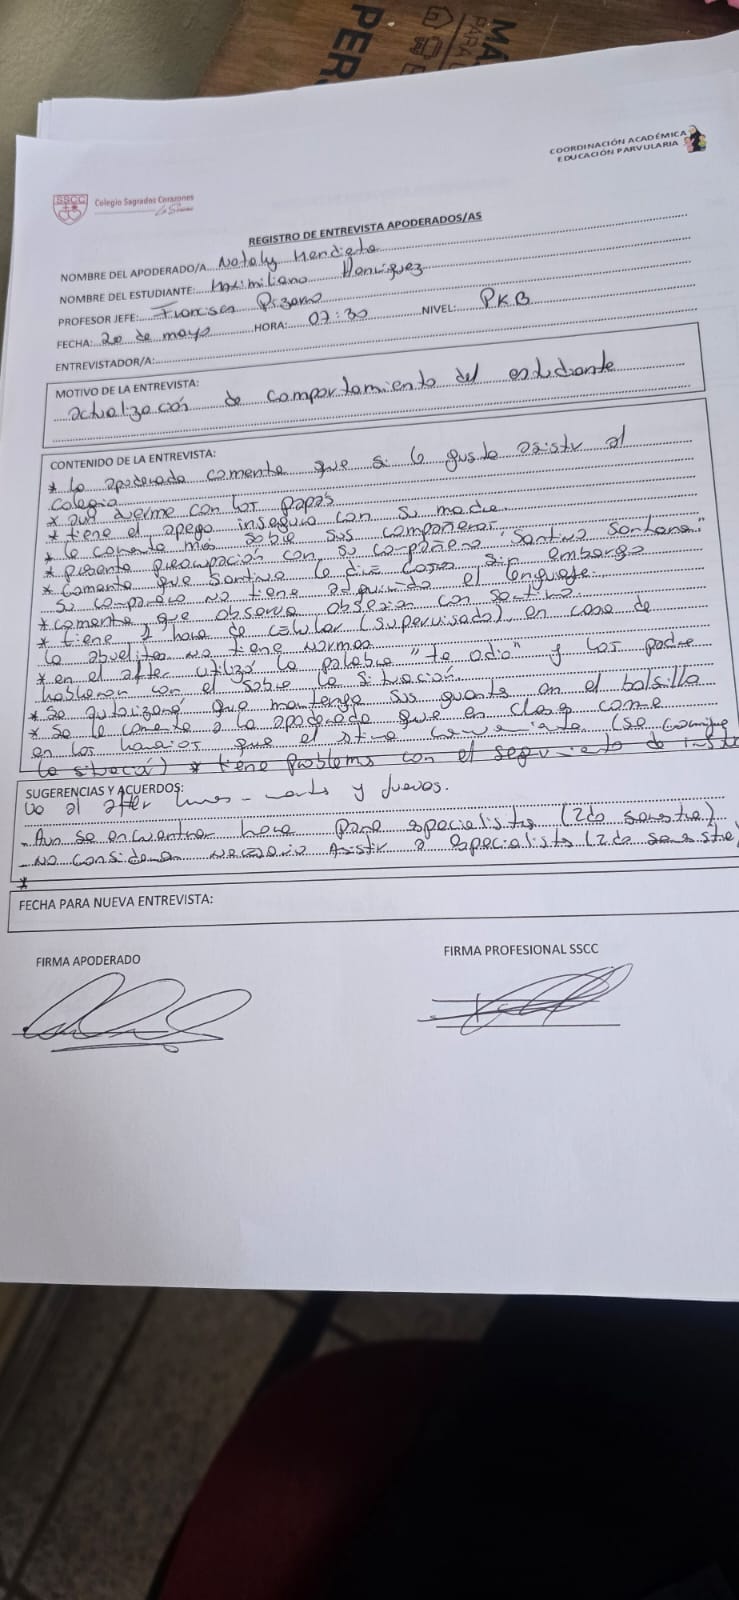 PER
MA
PARA
COORDINACIÓN ACADÉMICA
EDUCACIÓN PARVULARIA
SSCC
Colegio Sagrados Corazones
REGISTRO DE ENTREVISTA APODERADOS/AS
NOMBRE DEL APODERADO/A Nataly Mendieta
NOMBRE DEL ESTUDIANTE: Maximiliano Henriquez
PROFESOR JEFE: Francisca Pizarro
FECHA: 20 de mayo HORA: 07:30 NIVEL: PKB
ENTREVISTADOR/A:
MOTIVO DE LA ENTREVISTA:
actualización de comportamiento del estudiante
CONTENIDO DE LA ENTREVISTA:
* La apoderada comenta que si le gusta asistir al
colegio
* aun duerme con los papas
* tiene el apego inseguro con su madre
* le comenta más sobre sus compañeros
* presenta preocupación con su compañero "Santino Santana"
* comenta que Santino le dice cosas sin embargo
su compañero no tiene adquirido el lenguaje.
* comenta que observa obsesion con Santino
* tiene 1 hora de celular (supervisado), en casa de
la abuelita no tiene normas
* en el after utilizó la palabra "te odio" y los padre
hablaron con el sobre la situación
* Se autorizará que mantenga sus guantes en el bolsillo
* Se le comenta a la apoderada que en clases come
en los horarios que el estime conveniente (se
* tiene problems con el seguimiento de
SUGERENCIAS Y ACUERDOS:
Va al after lunes - martes y jueves.
- Aun se encuentran hora para especialista (2do semestre)
- No consideran necesario Asistir a especialista (2do semestre)
*
FECHA PARA NUEVA ENTREVISTA:
FIRMA APODERADO
FIRMA PROFESIONAL SSCC